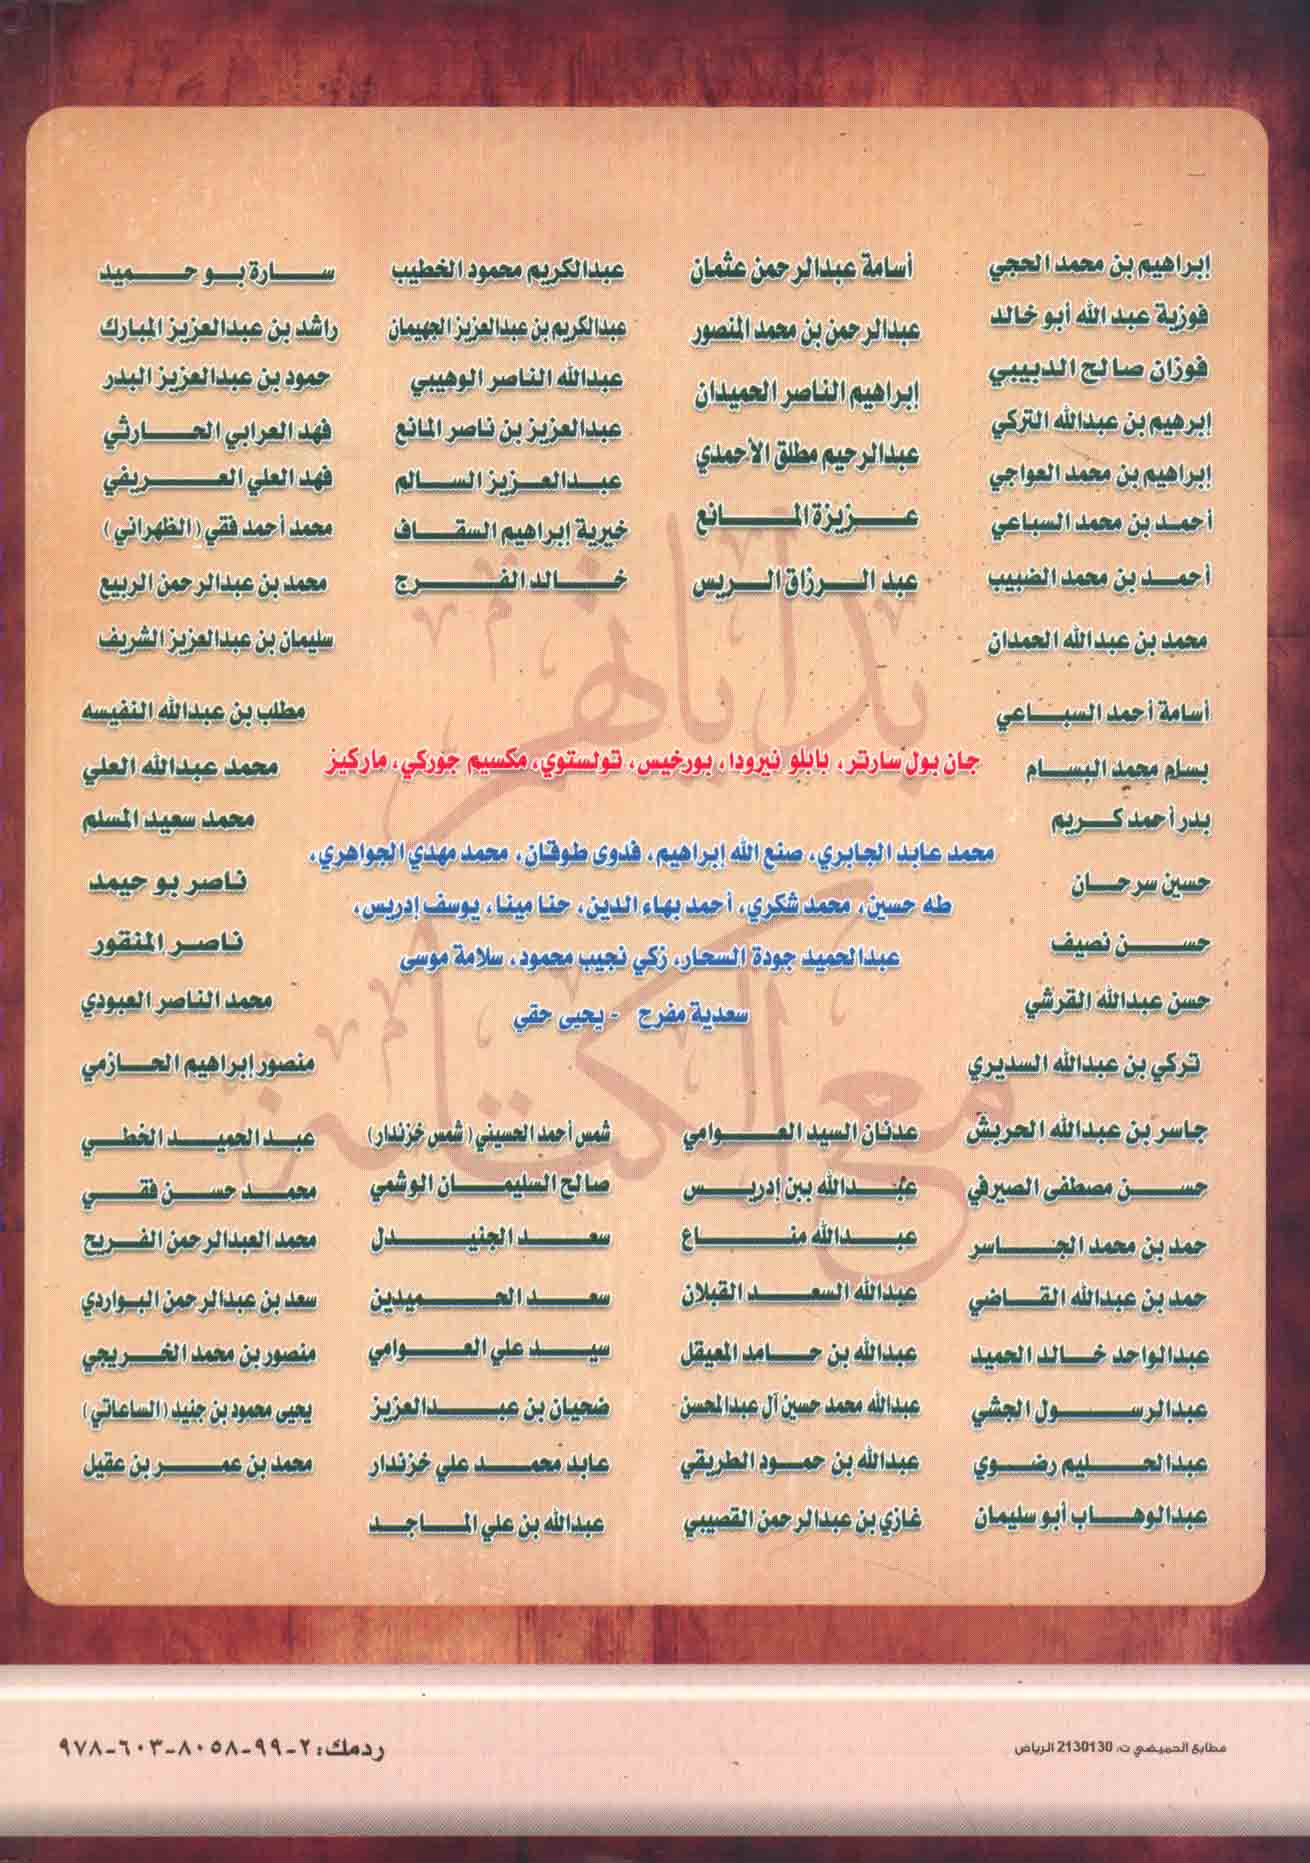 إبراهيم بن محمد الحجي
فوزية عبد الله أبو خالد
فوزان صالح الدبيبي
إبرهيم بن عبدالله التركي
إبراهيم بن محمد العواجي
أحمد بن محمد السباعي
أحمد بن محمد الضبيب
محمد بن عبدالله الحمدان
أسامة عبدالرحمن عثمان
عبدالرحمن بن محمد المنصور
إبراهيم الناصر الحميدان
عبدالرحيم مطلق الأحمدي
عزيزة المانع
عبد الرزاق الريس
عبدالكريم محمود الخطيب
عبدالكريم بن عبدالعزيز الجهيمان
عبدالله الناصر الوهيبي
عبدالعزيز بن ناصر المانع
عبدالعزيز السالم
خيرية إبراهيم السقاف
خالد الفرج
سارة بو حميد
راشد بن عبدالعزيز المبارك
حمود بن عبدالعزيز البدر
فهد العرابي الحارثي
فهد العلي العريفي
محمد أحمد فقي (الظهراني)
محمد بن عبدالرحمن الربيع
سليمان بن عبدالعزيز الشريف
أسامة أحمد السباعي
بسام محمد البسام
بدر أحمد كريم
حسين سرحان
حسن نصيف
حسن عبدالله القرشي
تركي بن عبدالله السديري
بداياتهم
مع الكتابة
جان بول سارتر، بابلو نيرودا، بورخيس، تولستوي، مكسيم جوركي، ماركيز
محمد عابد الجابري، صنع الله إبراهيم، فدوى طوقان، محمد مهدي الجواهري،
طه حسين، محمد شكري، أحمد بهاء الدين، حنا مينا، يوسف إدريس،
عبدالحميد جودة السحار، زكي نجيب محمود، سلامة موسى
سعدية مفرح - يحيى حقي
مطلب بن عبدالله النفيسه
محمد عبدالله العلي
محمد سعيد المسلم
ناصر بو حيمد
ناصر المنقور
محمد الناصر العبودي
منصور إبراهيم الحازمي
جاسر بن عبدالله الحربش
حسن مصطفى الصيرفي
حمد بن محمد الجاسر
حمد بن عبدالله القاضي
عبدالواحد خالد الحميد
عبدالرسول الجشي
عبدالحليم رضوي
عبدالوهاب أبو سليمان
عدنان السيد العوامي
عبدالله ببن إدريس
عبدالله مناع
عبدالله السعد القبلان
عبدالله بن حامد المعيقل
عبدالله محمد حسين آل عبدالمحسن
عبدالله بن حمود الطريقي
غازي بن عبدالرحمن القصيبي
شمس أحمد الحسيني (شمس خزندار)
صالح السليمان الوشمي
سعد الجنيدل
سعد الحميدين
سيد علي العوامي
ضحيان بن عبدالعزيز
عابد محمد علي خزندار
عبدالله بن علي الماجد
عبد الحميد الخطي
محمد حسن فقي
محمد العبدالرحمن الفريح
سعد بن عبدالرحمن البواردي
منصور بن محمد الخريجي
يحيى محمود بن جنيد (الساعاتي)
محمد بن عمر بن عقيل
مطابع الحميضي ت: 2130130 الرياض
ردمك: ٢-٩٩-٨٠٥٨-٦٠٣-٩٧٨